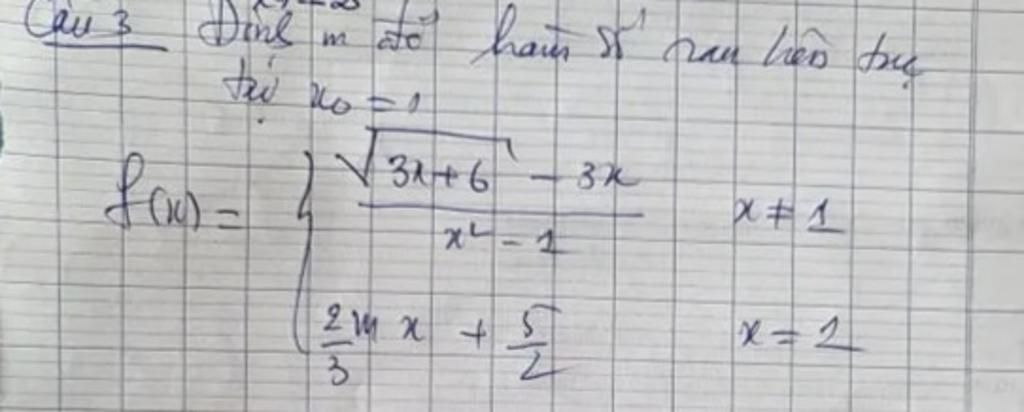 Câu 3 Định m để hàm số sau liên tục
tại x₀ = 1
f(x) = { (√(3x+6) - 3x) / (x² - 1) x ≠ 1
(2/3)m x + 5/2 x = 1